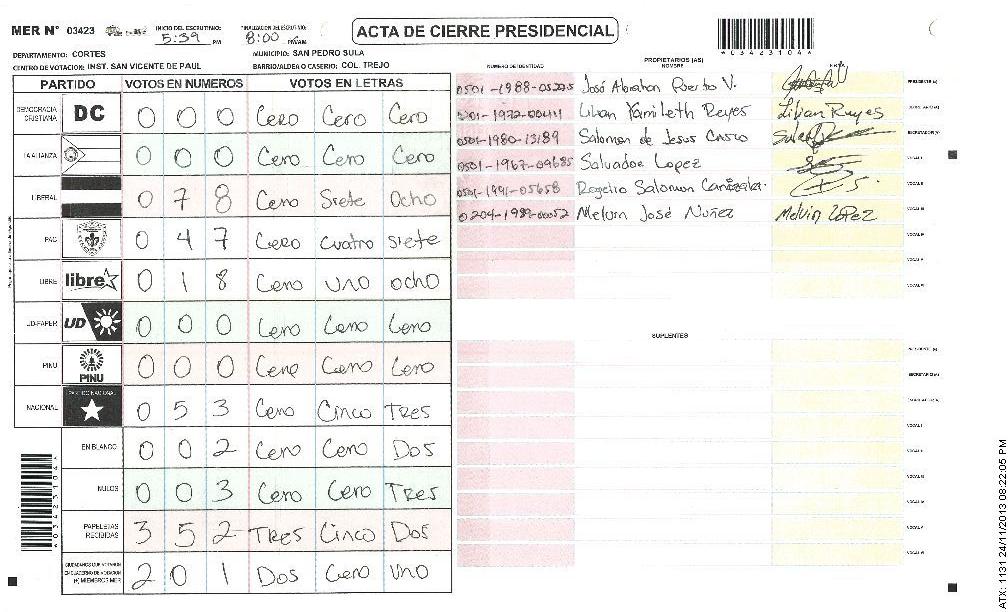 MER N° 03423 INICIO DEL ESCRUTINIO: 5:39 PM FINALIZACION DEL ESCRUTINIO: 8:00 PM/AM ACTA DE CIERRE PRESIDENCIAL *03423104*
DEPARTAMENTO: CORTES MUNICIPIO: SAN PEDRO SULA
CENTRO DE VOTACION: INST. SAN VICENTE DE PAUL BARRIO/ALDEA O CASERIO: COL. TREJO
PARTIDO VOTOS EN NUMEROS VOTOS EN LETRAS
DEMOCRACIA CRISTIANA DC 0 0 0 Cero Cero Cero
LA ALIANZA 0 0 0 Cero Cero Cero
LIBERAL 0 7 8 Cero Siete Ocho
PAC 0 4 7 Cero Cuatro Siete
LIBRE libre 0 1 8 Cero uno ocho
UD-FAPER UD 0 0 0 Cero Cero Cero
PINU PINU 0 0 0 Cero Cero Cero
NACIONAL PARTIDO NACIONAL 0 5 3 Cero Cinco Tres
EN BLANCO 0 0 2 Cero Cero Dos
NULOS 0 0 3 Cero Cero Tres
PAPELETAS RECIBIDAS 3 5 2 Tres Cinco Dos
CIUDADANOS QUE VOTARON EN CUADERNO DE VOTACION (+) MIEMBROS MER 2 0 1 Dos Cero uno
*03423104*
PROPIETARIOS (AS)
NUMERO DE IDENTIDAD NOMBRE FIRMA
0501-1988-05205 José Abrahan Puerto V. PRESIDENTE (A)
0201-1972-00414 Lilian Yamileth Reyes Lilian Reyes SECRETARIO (A)
0501-1980-13189 Salomon de Jesus Castro ESCRUTADOR (A)
0501-1967-09685 Salvador Lopez VOCAL I
0501-1991-05658 Rogelio Salomon VOCAL II
0204-1989-00052 Melvin José Nuñez Melvin Lopez VOCAL III
VOCAL IV
VOCAL V
VOCAL VI
SUPLENTES
PRESIDENTE (A)
SECRETARIO (A)
ESCRUTADOR (A)
VOCAL I
VOCAL II
VOCAL III
VOCAL IV
VOCAL V
VOCAL VI
ATX: 1131 24/11/2013 08:22:05 PM